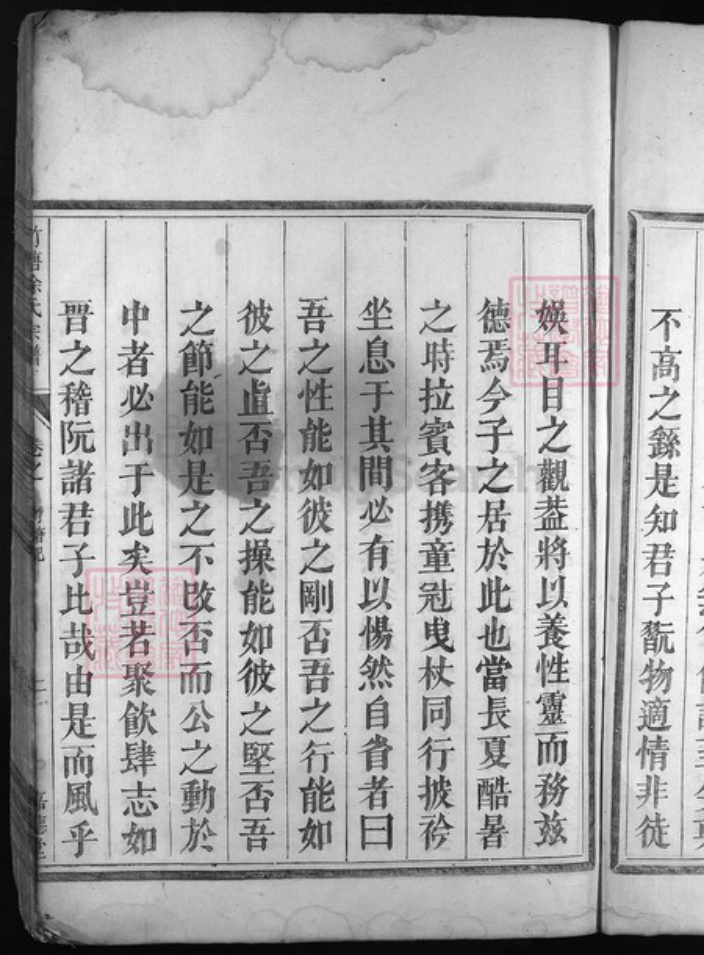 不高之繇是知君子翫物適情非徒
娛耳目之觀葢將以養性靈而務茲
德焉今子之居於此也當長夏酷暑
之時拉賓客携童冠曳杖同行披衿
坐息于其間必有以惕然自省者曰
吾之性能如彼之剛否吾之行能如
彼之直否吾之操能如彼之堅否吾
之節能如是之不改否而公之動於
中者必出于此矣豈若聚飲肆志如
晋之稽阮諸君子比哉由是而風乎